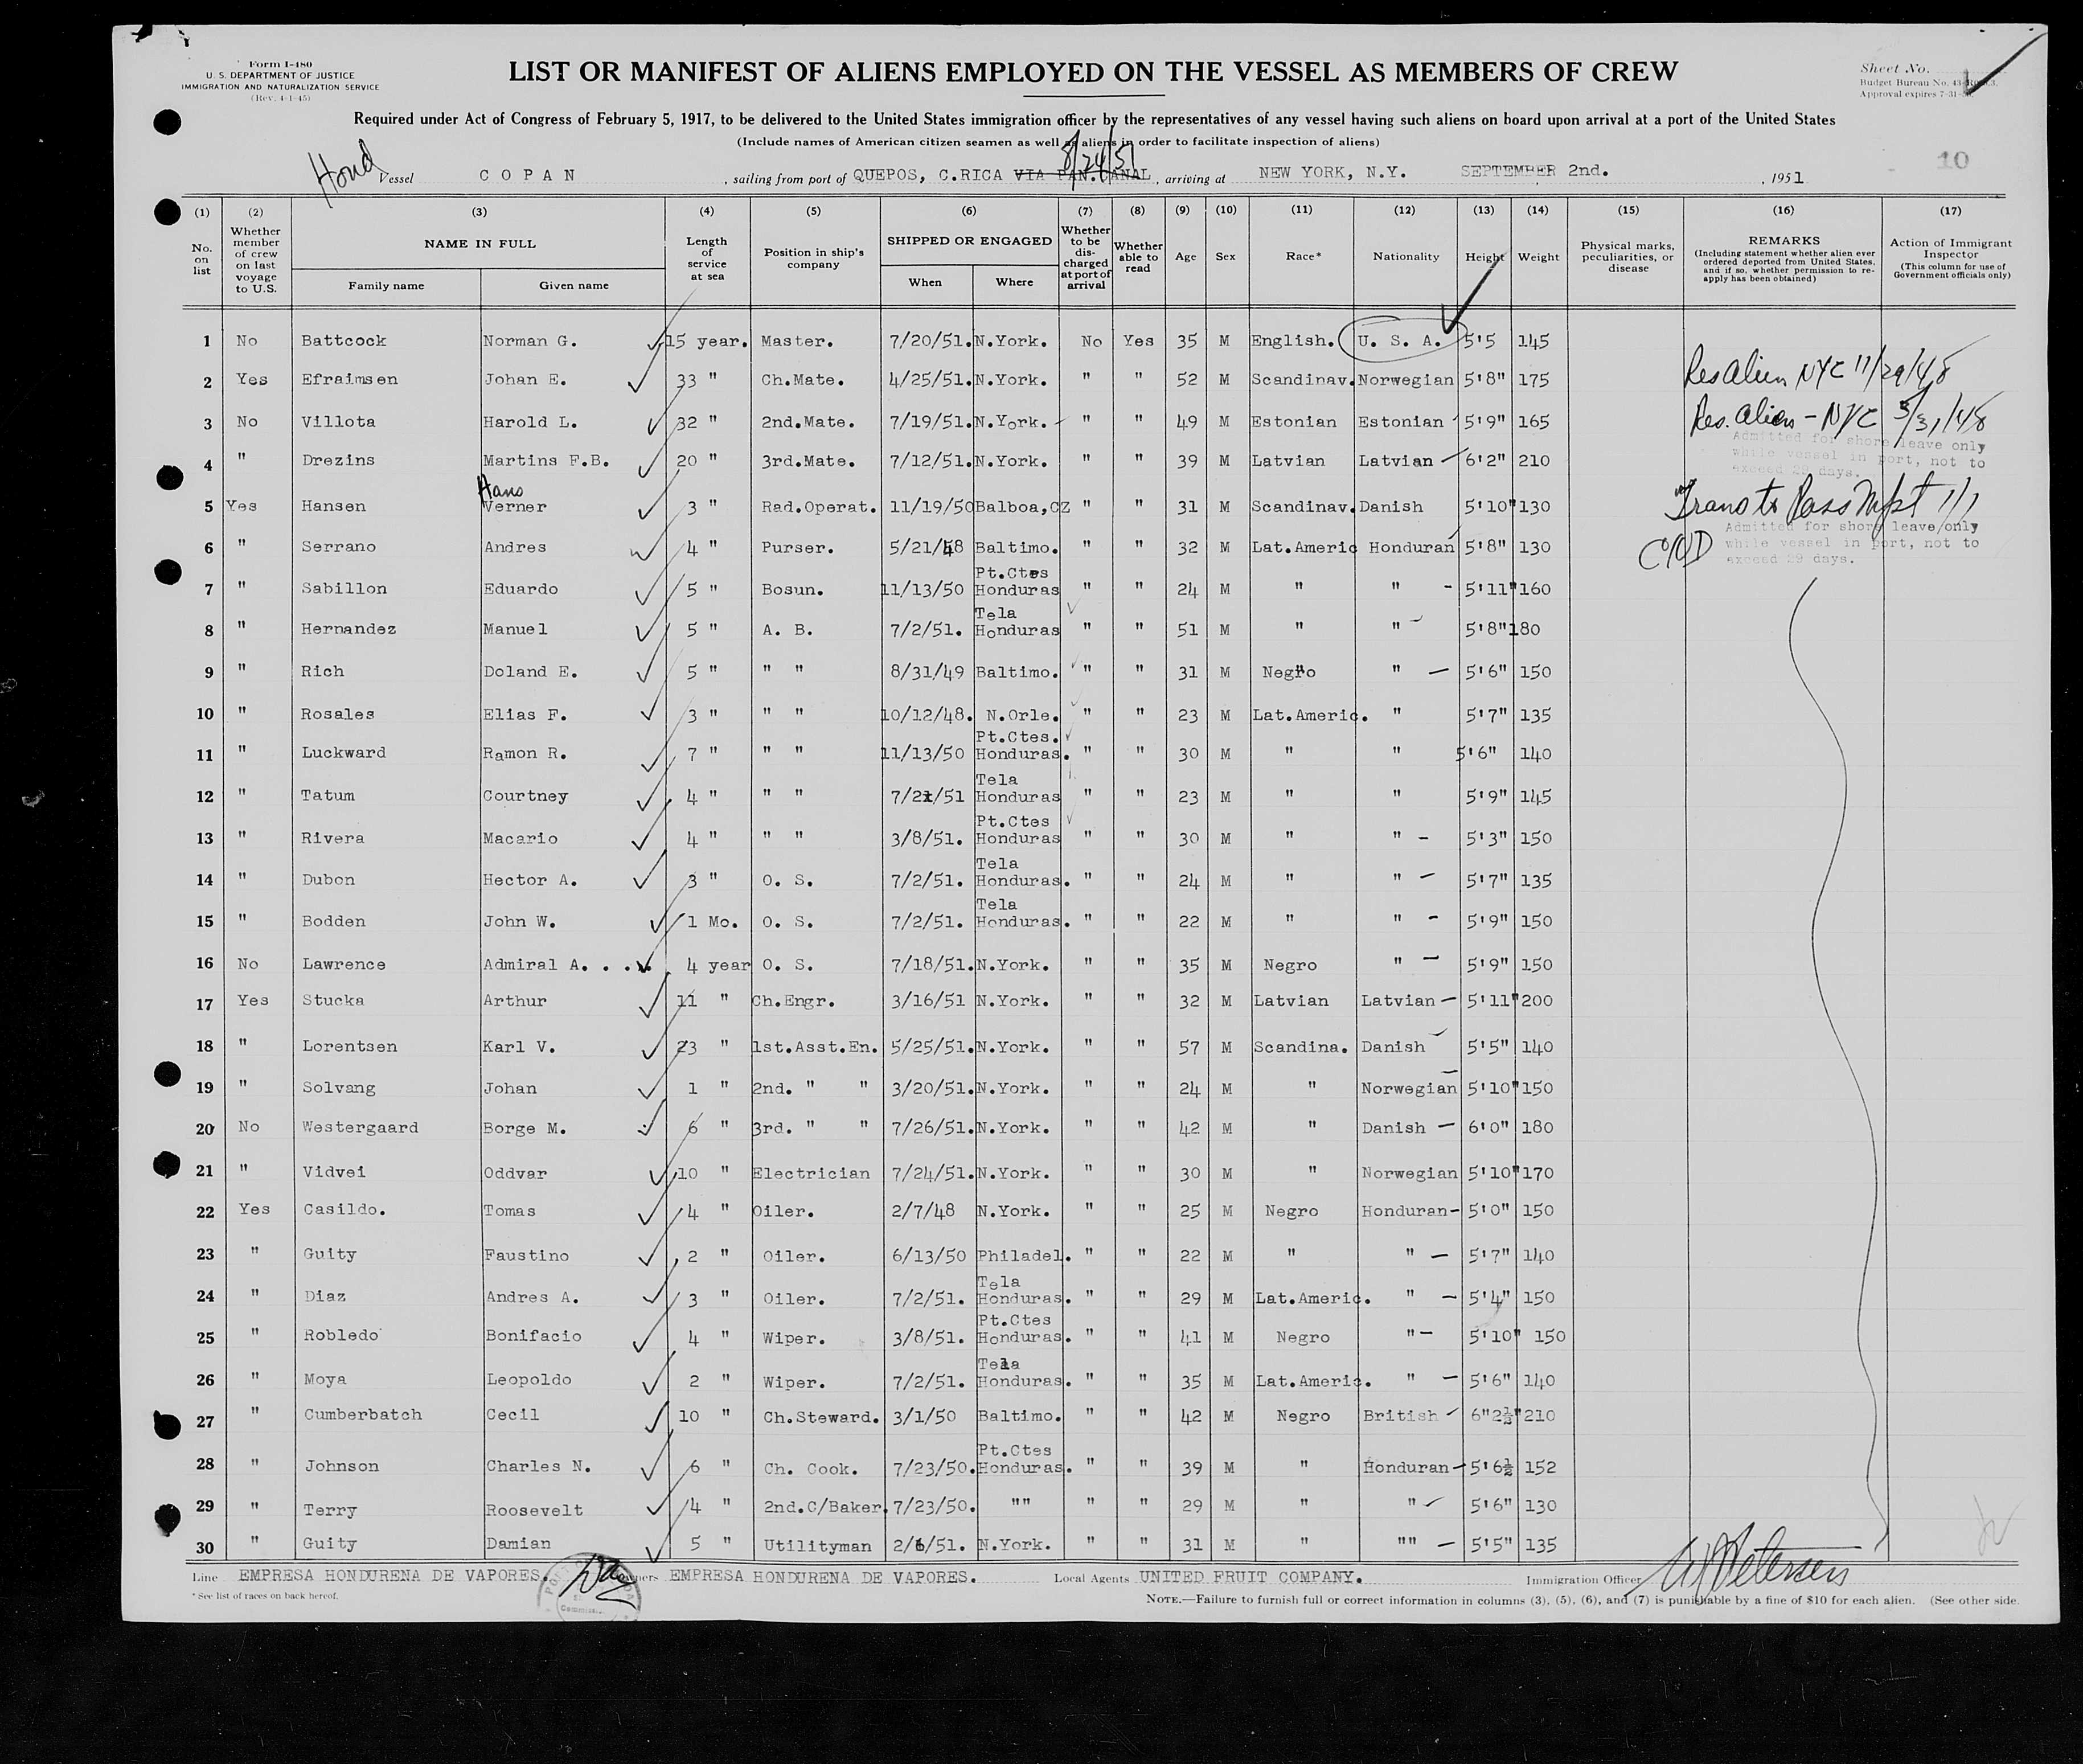 Form I-480
U. S. DEPARTMENT OF JUSTICE
IMMIGRATION AND NATURALIZATION SERVICE
(Rev. 4-1-45)
LIST OR MANIFEST OF ALIENS EMPLOYED ON THE VESSEL AS MEMBERS OF CREW
Sheet No.
Budget Bureau No.
Approval expires 7-31-
Required under Act of Congress of February 5, 1917, to be delivered to the United States immigration officer by the representatives of any vessel having such aliens on board upon arrival at a port of the United States
(Include names of American citizen seamen as well as aliens in order to facilitate inspection of aliens)
10
Hond
8/24/51
Vessel COPAN, sailing from port of QUEPOS, C.RICA VIA PAN. CANAL, arriving at NEW YORK, N.Y. SEPTEMBER 2nd., 1951
(1) (2) (3) (4) (5) (6) (7) (8) (9) (10) (11) (12) (13) (14) (15) (16) (17)
No. on list
Whether member of crew on last voyage to U.S.
NAME IN FULL
Family name
Given name
Length of service at sea
Position in ship's company
SHIPPED OR ENGAGED
When
Where
Whether to be discharged at port of arrival
Whether able to read
Age
Sex
Race*
Nationality
Height
Weight
Physical marks, peculiarities, or disease
REMARKS
(Including statement whether alien ever ordered deported from United States, and if so, whether permission to reapply has been obtained)
Action of Immigrant Inspector
(This column for use of Government officials only)
1 No Battcock Norman G. 15 year. Master. 7/20/51. N.York. No Yes 35 M English. U. S. A. 5'5 145
2 Yes Efraimsen Johan E. 33 " Ch.Mate. 4/25/51. N.York. " " 52 M Scandinav. Norwegian 5'8" 175 Res Alien NYC 11/29/48
3 No Villota Harold L. 32 " 2nd.Mate. 7/19/51. N.York. " " 49 M Estonian Estonian 5'9" 165 Res. Alien - NYC
Admitted for shore leave only
while vessel in port, not to
exceed 29 days.
4 " Drezins Martins F.B. 20 " 3rd.Mate. 7/12/51. N.York. " " 39 M Latvian Latvian 6'2" 210
Hans
5 Yes Hansen Verner 3 " Rad.Operat. 11/19/50 Balboa,CZ " " 31 M Scandinav. Danish 5'10" 130 Trans to Pass Mfst 1/1
Admitted for shore leave only
while vessel in port, not to
exceed 29 days.
6 " Serrano Andres 4 " Purser. 5/21/48 Baltimo. " " 32 M Lat.Americ Honduran 5'8" 130
7 " Sabillon Eduardo 5 " Bosun. 11/13/50 Pt.Ctes Honduras " " 24 M " " 5'11" 160
8 " Hernandez Manuel 5 " A. B. 7/2/51. Tela Honduras " " 51 M " " 5'8" 180
9 " Rich Doland E. 5 " " " 8/31/49 Baltimo. " " 31 M Negro " 5'6" 150
10 " Rosales Elias F. 3 " " " 10/12/48. N.Orle. " " 23 M Lat.Americ. " 5'7" 135
11 " Luckward Ramon R. 7 " " " 11/13/50 Pt.Ctes. Honduras. " " 30 M " " 5'6" 140
12 " Tatum Courtney 4 " " " 7/21/51 Tela Honduras " " 23 M " " 5'9" 145
13 " Rivera Macario 4 " " " 3/8/51. Pt.Ctes Honduras " " 30 M " " 5'3" 150
14 " Dubon Hector A. 3 " O. S. 7/2/51. Tela Honduras. " " 24 M " " 5'7" 135
15 " Bodden John W. 1 Mo. O. S. 7/2/51. Tela Honduras. " " 22 M " " 5'9" 150
16 No Lawrence Admiral A. . . . 4 year O. S. 7/18/51. N.York. " " 35 M Negro " 5'9" 150
17 Yes Stucka Arthur 11 " Ch.Engr. 3/16/51 N.York. " " 32 M Latvian Latvian 5'11" 200
18 " Lorentsen Karl V. 23 " 1st.Asst.En. 5/25/51. N.York. " " 57 M Scandina. Danish 5'5" 140
19 " Solvang Johan 1 " 2nd. " " 3/20/51. N.York. " " 24 M " Norwegian 5'10" 150
20 No Westergaard Borge M. 6 " 3rd. " " 7/26/51. N.York. " " 42 M " Danish 6'0" 180
21 " Vidvei Oddvar 10 " Electrician 7/24/51. N.York. " " 30 M " Norwegian 5'10" 170
22 Yes Casildo. Tomas 4 " Oiler. 2/7/48 N.York. " " 25 M Negro Honduran 5'0" 150
23 " Guity Faustino 2 " Oiler. 6/13/50 Philadel. " " 22 M " " 5'7" 140
24 " Diaz Andres A. 3 " Oiler. 7/2/51. Tela Honduras. " " 29 M Lat.Americ. " 5'4" 150
25 " Robledo Bonifacio 4 " Wiper. 3/8/51. Pt.Ctes Honduras. " " 41 M Negro " 5'10" 150
26 " Moya Leopoldo 2 " Wiper. 7/2/51. Tela Honduras. " " 35 M Lat.Americ. " 5'6" 140
27 " Cumberbatch Cecil 10 " Ch.Steward. 3/1/50 Baltimo. " " 42 M Negro British 6"2½" 210
28 " Johnson Charles N. 6 " Ch. Cook. 7/23/50. Pt.Ctes Honduras. " " 39 M " Honduran 5'6½ 152
29 " Terry Roosevelt 4 " 2nd.C/Baker. 7/23/50. "" " " 29 M " " 5'6" 130
30 " Guity Damian 5 " Utilityman 2/6/51. N.York. " " 31 M " "" 5'5" 135
Line EMPRESA HONDURENA DE VAPORES. Owners EMPRESA HONDURENA DE VAPORES. Local Agents UNITED FRUIT COMPANY. Immigration Officer W Petersen
* See list of races on back hereof.
NOTE.—Failure to furnish full or correct information in columns (3), (5), (6), and (7) is punishable by a fine of $10 for each alien. (See other side.